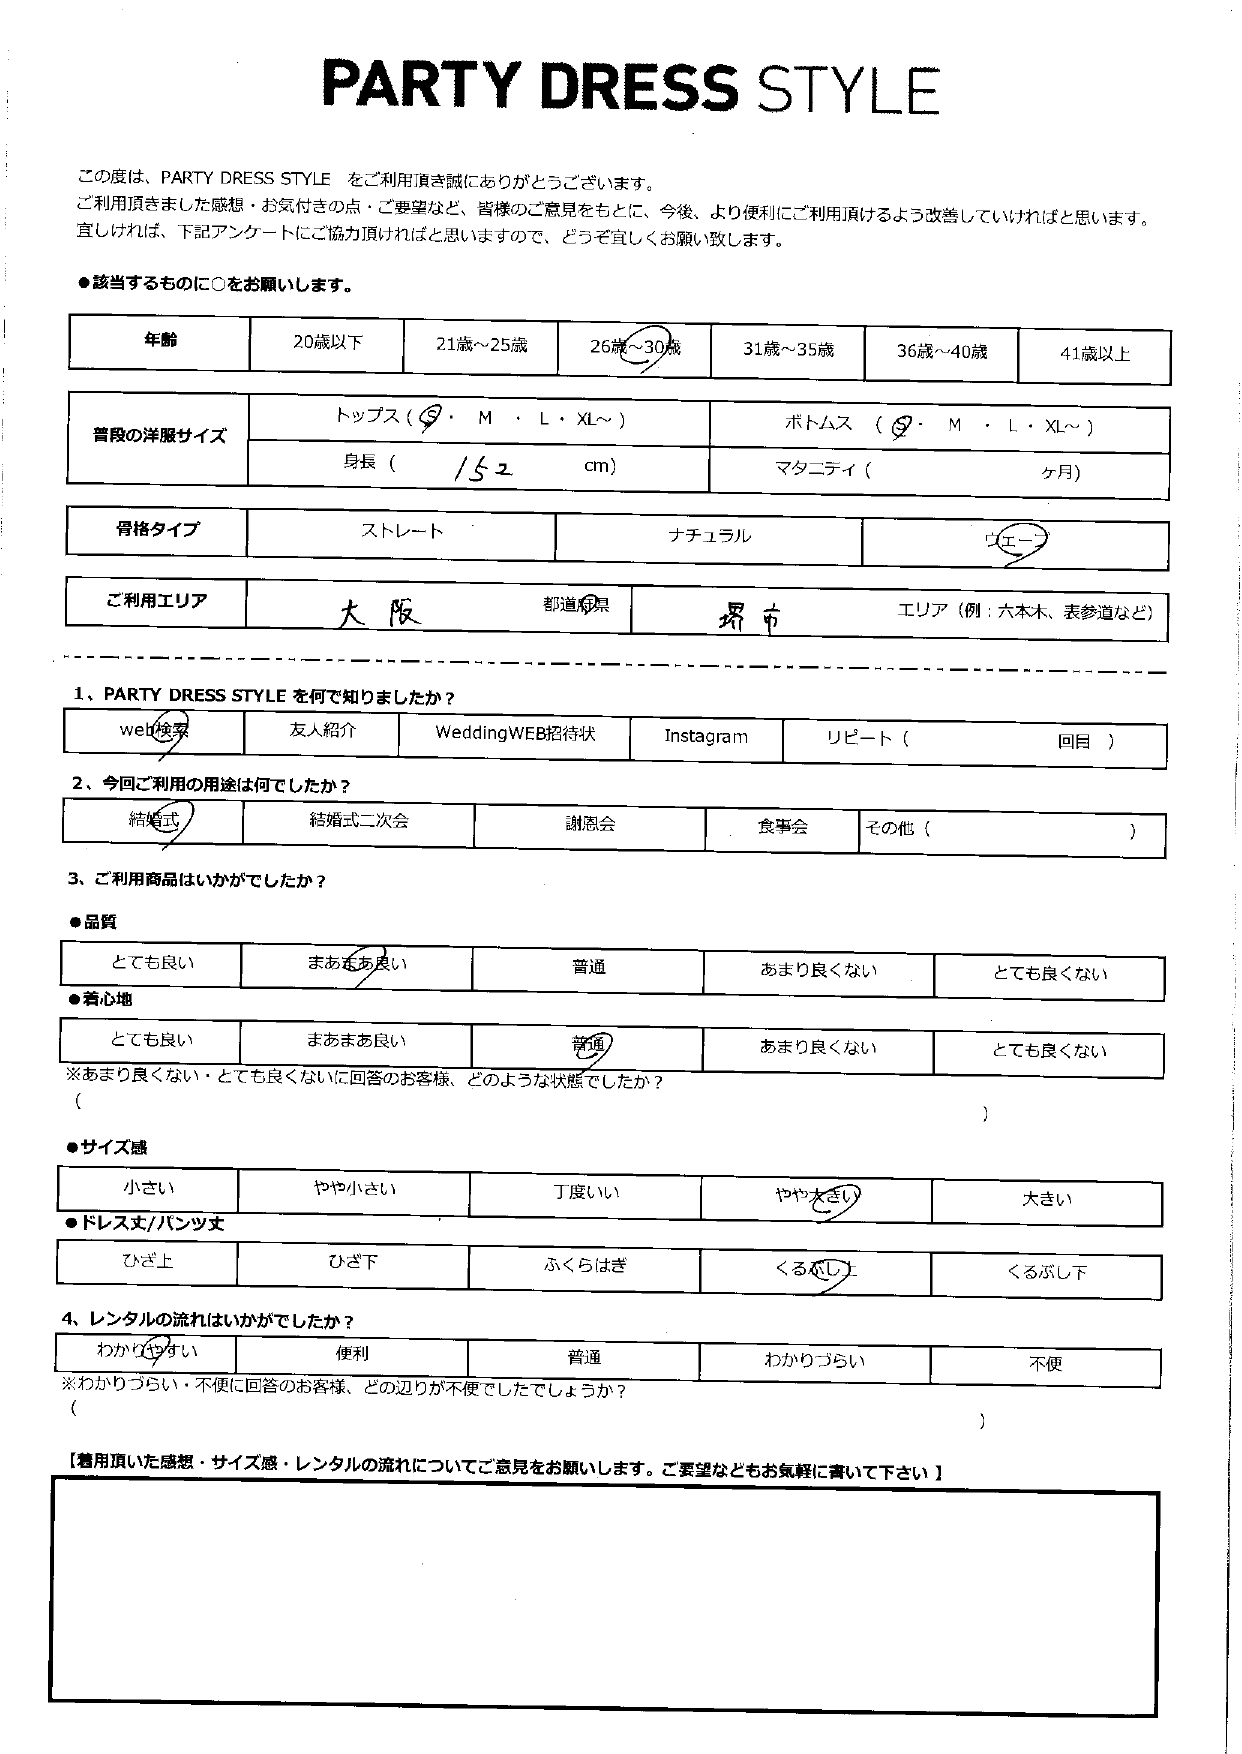 PARTY DRESS STYLE
この度は、PARTY DRESS STYLE をご利用頂き誠にありがとうございます。
ご利用頂きました感想・お気付きの点・ご要望など、皆様のご意見をもとに、今後、より便利にご利用頂けるよう改善していければと思います。
宜しければ、下記アンケートにご協力頂ければと思いますので、どうぞ宜しくお願い致します。
●該当するものに○をお願いします。
年齢 20歳以下 21歳～25歳 26歳～30歳 31歳～35歳 36歳～40歳 41歳以上
普段の洋服サイズ トップス（ S ・ M ・ L ・ XL～ ） ボトムス （ S ・ M ・ L ・ XL～ ）
身長（ 152 cm） マタニティ（ ヶ月）
骨格タイプ ストレート ナチュラル ウェーブ
ご利用エリア 大阪 都道府県 堺市 エリア（例：六本木、表参道など）
1、PARTY DRESS STYLE を何で知りましたか？
web検索 友人紹介 WeddingWEB招待状 Instagram リピート（ 回目 ）
2、今回ご利用の用途は何でしたか？
結婚式 結婚式二次会 謝恩会 食事会 その他（ ）
3、ご利用商品はいかがでしたか？
●品質
とても良い まあまあ良い 普通 あまり良くない とても良くない
●着心地
とても良い まあまあ良い 普通 あまり良くない とても良くない
※あまり良くない・とても良くないに回答のお客様、どのような状態でしたか？
（ ）
●サイズ感
小さい やや小さい 丁度いい やや大きい 大きい
●ドレス丈/パンツ丈
ひざ上 ひざ下 ふくらはぎ くるぶし上 くるぶし下
4、レンタルの流れはいかがでしたか？
わかりやすい 便利 普通 わかりづらい 不便
※わかりづらい・不便に回答のお客様、どの辺りが不便でしたでしょうか？
（ ）
【着用頂いた感想・サイズ感・レンタルの流れについてご意見をお願いします。ご要望などもお気軽に書いて下さい 】